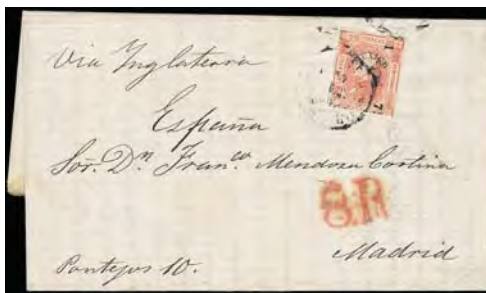 Via Inglaterra
España
Sor. Dn. Franco. Mendoza Cortina
8.R
Madrid
Pontejos 10.